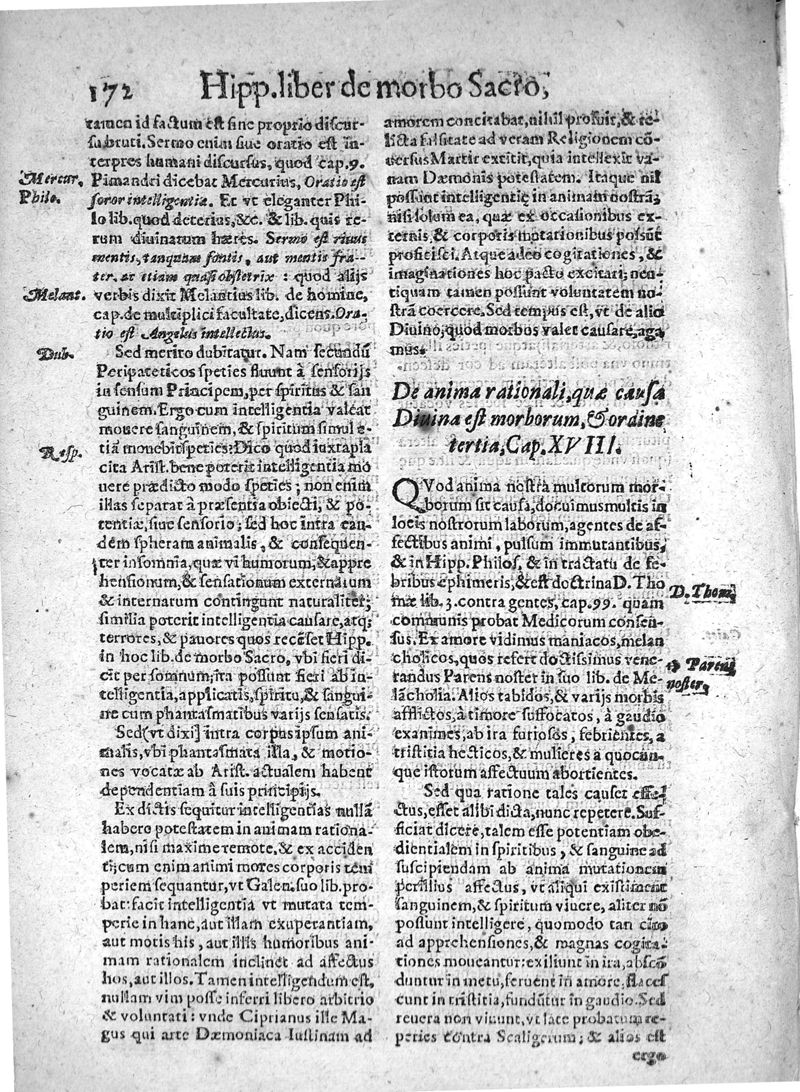 172 Hipp. liber de morbo Sacro,
tamen id factum est sine proprio discur-
su bruti. Sermo enim siue oratio est in-
terpres humani discursus, quod cap. 9.
Mercur. Pimandri dicebat Mercurius, Oratio est
Philo. soror intelligentiæ. Et vt eleganter Phi-
lo lib. quod deterius, &c. & lib. quis re-
rum diuinatum hæres. Sermo est riuus
mentis, tanquam fontis, aut mentis fra-
ter, ac etiam quasi obstetrix : quod alijs
Melant. verbis dixit Melantius lib. de homine,
cap. de multiplici facultate, dicens. Ora-
tio est Angelus intellectus.
Dub. Sed merito dubitatur. Nam secundũ
Peripateticos species fluunt à sensorijs
in sensum Principem, per spiritus & san
guinem. Ergo cum intelligentia valeat
mouere sanguinem, & spiritum simul e-
tiã mouebit species: Dico quod iuxta pla
Resp. cita Arist. bene poterit intelligentia mo
uere prædicto modo species; non enim
illas separat à præsentia obiecti, & po-
tentiæ, siue sensorio; sed hoc intra ean-
dem spheram animalis, & consequen-
ter insomnia, quæ vi humorum, & appre
hensionum, & sensationum externatum
& internatum contingunt naturaliter;
similia poterit intelligentia causare, atq;
terrores, & pauores quos recẽset Hipp.
in hoc lib. de morbo Sacro, vbi fieri di-
cit per somnum, ita possunt fieri ab in-
telligentia, applicatis, spiritu, & sangui-
ne cum phantasmatibus varijs sensatis.
Sed (vt dixi] intra corpus ipsum ani-
malis, vbi phantasmata illa, & motio-
nes vocatæ ab Arist. actualem habent
dependentiam à suis principijs.
Ex dictis sequitur intelligentias nullã
habero potestatem in animam rationa-
lem, nisi maxime remote, & ex acciden
ti; cum enim animi mores corporis tem
periem sequantur, vt Galen. suo lib. pro-
bat: facit intelligentia vt mutata tem-
perie in hanc, aut illam exuperantiam,
aut motis his, aut illis humoribus ani-
mam rationalem inclinet ad affectus
hos, aut illos. Tamen intelligendum est,
nullam vim posse inferri libero arbitrio
& voluntati: vnde Ciprianus ille Ma-
gus qui arte Dæmoniaca Iustinam ad
amorem concitabat, nihil profuit, & re-
licta falsitate ad veram Religionem cõ-
uersus Martir extitit, quia intellexit va-
nam Dæmonis potestatem. Itaque nil
possunt intelligentiæ in animam nostrã;
nisi solum ea, quæ ex occasionibus ex-
ternis, & corporis mutationibus possũt
proficisci. Atque adeo cogitationes, &
imaginationes hoc pacto excitari; nen-
tiquam tamen possunt voluntatem no-
strã coercere. Sed tempus est, vt de alio
Diuino, quod morbus valet causare, aga
mus.
De anima rationali, quæ causa
Diuina est morborum, & ordine
tertia, Cap. XVIII.
QVod anima nostra multorum mor-
borum sit causa, docuimus multis in
locis nostrorum laborum, agentes de af-
fectibus animi, pulsum immutantibus,
& in Hipp. Philos, & in tractatu de fe-
bribus ephimeris, & est doctrina D. Tho
mæ lib. 3. contra gentes, cap. 99. quam D. Thom.
communis probat Medicorum consen-
sus. Ex amore vidimus maniacos, melan
cholicos, quos refert doctissimus vene- Parens
randus Parens noster in suo lib. de Me- noster,
lãcholia. Alios tabidos, & varijs morbis
afflictos, à timore suffocatos, à gaudio
exanimes, ab ira furiosos, febrientes, a
tristitia hecticos, & mulieres a quocun-
que istorum affectuum abortientes.
Sed qua ratione tales causet effe-
ctus, esset alibi dicta, nunc repetere. Suf-
ficiat dicere, talem esse potentiam obe-
dientialem in spiritibus, & sanguine ad
suscipiendam ab anima mutationem
per illius affectus, vt aliqui existiment
sanguinem, & spiritum viuere, aliter nõ
possunt intelligere, quomodo tan cito
ad apprehensiones, & magnas cogita-
tiones moueantur: exiliunt in ira, abscõ
duntur in metu, feruent in amore, flaces
cunt in tristitia, fundũtur in gaudio. Sed
reuera non viuunt, vt late probatum re-
peries contra Scaligerum; & alios est
ergo